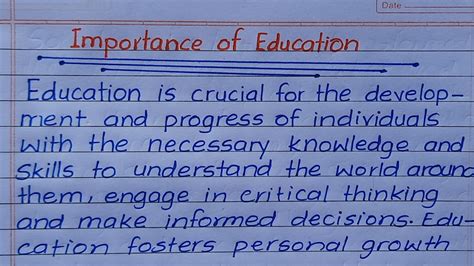 Date
Importance of Education
Education is crucial for the develop-
ment and progress of individuals
with the necessary knowledge and
skills to understand the world around
them, engage in critical thinking
and make informed decisions. Edu-
cation fosters personal growth